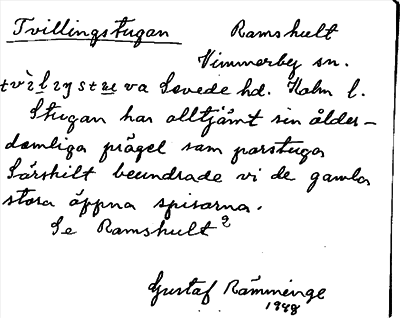 Tvillingstugan Ramshult
Vimmerby sn.
tvìlıŋstuva Sevede hd. Kalm l.
Stugan har alltjämt sin ålder-
domliga prägel som parstuga
Särskilt beundrade vi de gamla
stora öppna spisarna.
Se Ramshult 2
Gustaf Rämminge
1948